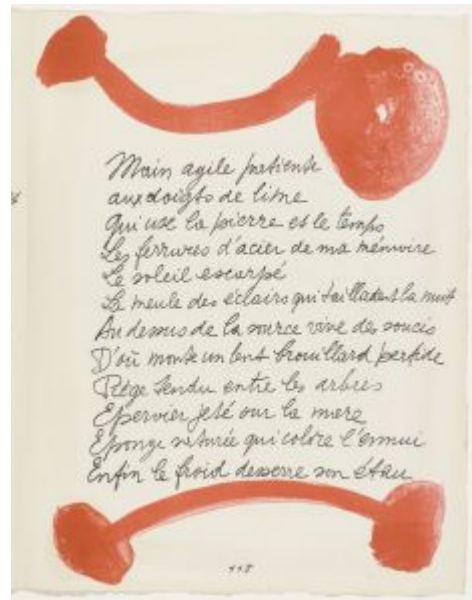 Main agile patiente
aux doigts de lime
Qui use la pierre et le temps
Les ferrures d'acier de ma mémoire
Le soleil escarpé
La meule des éclairs qui tailladent la nuit
Au dessus de la source vive des soucis
D'où monte un lent brouillard perfide
Piège tendu entre les arbres
Epervier jeté sur la mare
Eponge saturée qui colore l'ennui
Enfin le froid desserre son étau